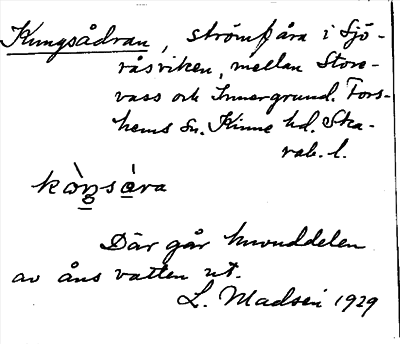 Kungsådran, strömfåra i Sjö-
råsviken, mellan Store-
vass och Innergrund. Fors-
hems sn. Kinne hd. Ska-
rab. l.
kòŋsàra
Där går huvuddelen
av åns vatten ut.
L. Madsen 1929